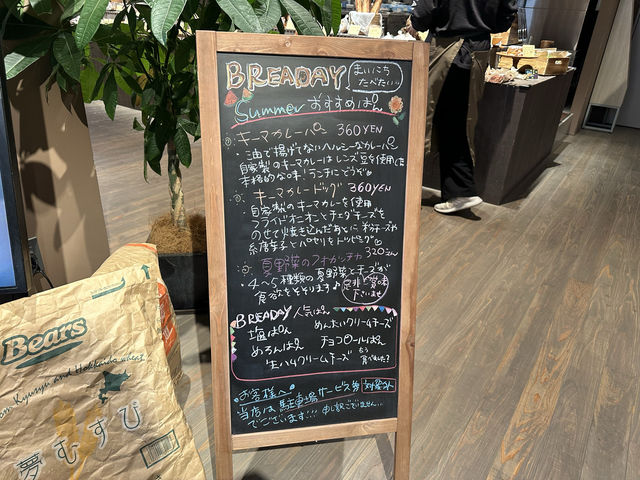 BREADAY
まいにち
たべたい…
Summer おすすめぱん
キーマカレーパン 360YEN
・油で揚げてないヘルシーなカレーパン
自家製のキーマカレーはレンズ豆を使用した
本格的な味!ランチにどうぞ
キーマカレードッグ 360YEN
・自家製のキーマカレーを使用
フライドオニオンとチェダーチーズを
のせて焼き込んだあとに粉チーズや
糸唐辛子とパセリをトッピング
夏野菜のフォカッチャ 320YEN
・4〜5種類の夏野菜とチーズが
食欲をそそります♪
是非ご賞味
下さいませ
BREADAY 人気ぱん
塩ぱん めんたいクリームチーズ
めろんぱん チョコロールぱん
生ハムクリームチーズ もう食べました?
お客様へ
当店は駐車場サービス券 対象外
でございます!!! 申し訳ございません…
Bears
from Kyusyu and Hokkaido wheat
夢むすび